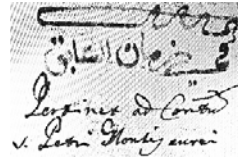 في زمان السابق
Pertinet ad Contũ
s. Petri Montis aurei